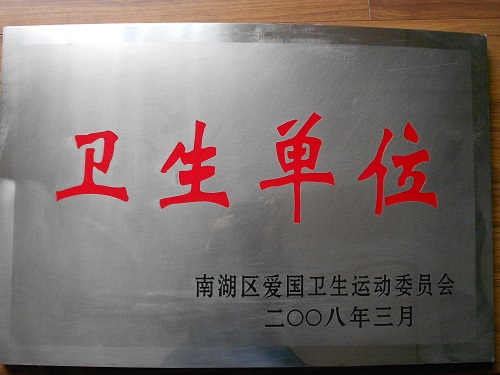 卫生单位
南湖区爱国卫生运动委员会
二〇〇八年三月